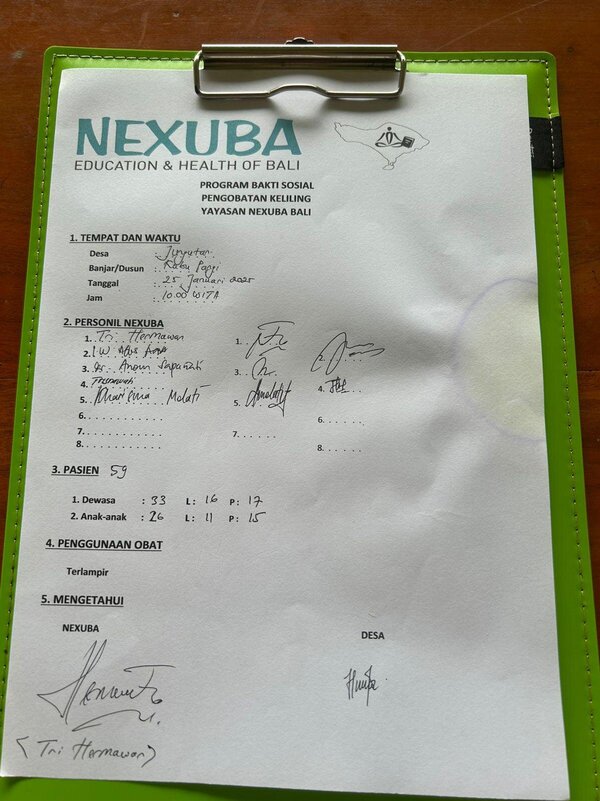 NEXUBA
EDUCATION & HEALTH OF BALI
PROGRAM BAKTI SOSIAL
PENGOBATAN KELILING
YAYASAN NEXUBA BALI
1. TEMPAT DAN WAKTU
Desa :
Banjar/Dusun :
Tanggal : 25 Januari 2025
Jam : 10.00 WITA
2. PERSONIL NEXUBA
1. Tri Hermawan 1.
2. I W 2.
3. dr. Anom 3.
4. 4.
5. Kharisma Melati 5.
6. . . . . . . . . . . . 6. . . . . .
7. . . . . . . . . . . . 7. . . . . .
8. . . . . . . . . . . . 8. . . . . .
3. PASIEN 59
1. Dewasa : 33 L : 16 P : 17
2. Anak-anak : 26 L : 11 P : 15
4. PENGGUNAAN OBAT
Terlampir
5. MENGETAHUI
NEXUBA DESA
(Tri Hermawan)